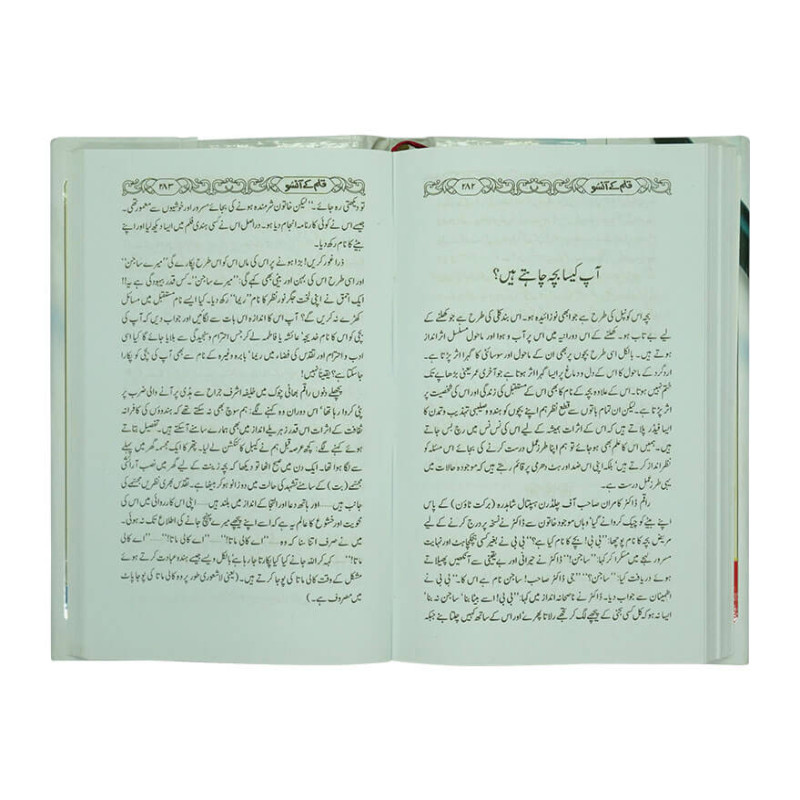 قلم کے آنسو
۲۸۲
آپ کیسا بچہ چاہتے ہیں؟
بچہ اس کونپل کی طرح ہے جو ابھی نوزائیدہ ہو۔ اس بند کلی کی طرح ہے جو کھلنے کے
لیے بے تاب ہو۔ کھلنے کے اس دورانیہ میں اس پر آب و ہوا اور ماحول مسلسل اثر انداز
ہوتے ہیں۔ بالکل اسی طرح بچوں پر بھی ان کے ماحول اور سوسائٹی کا گہرا اثر پڑتا ہے۔
اردگرد کے ماحول کا اس کے دل و دماغ پر ایسا گہرا اثر ہوتا ہے جو آخری عمر یعنی بڑھاپے تک
ختم نہیں ہوتا۔ اس کے علاوہ بچے کے نام کا بھی اس کے مستقبل کی زندگی اور اس کی شخصیت پر
اثر پڑتا ہے۔ لیکن ان تمام باتوں سے قطع نظر ہم اپنے بچوں کو ہندو و صلیبی تہذیب و تمدن کا
ایسا فیڈر پلاتے ہیں کہ اس کے اثرات ہمیشہ کے لیے اس کی نس نس میں رچ بس جاتے
ہیں۔ ہمیں اس کا علم بھی ہو جائے تو ہم اپنا طرز عمل درست کرنے کی بجائے اس مسئلہ کو
نظر انداز کر دیتے ہیں‘ بلکہ اپنی اس ضد اور ہٹ دھرمی پر قائم رہتے ہیں کہ موجودہ حالات میں
یہی طرز عمل درست ہے۔
راقم ڈاکٹر کامران صاحب آف چلڈرن ہسپتال شاہدرہ (برکت ٹاؤن) کے پاس
اپنے بیٹے کو چیک کروانے گیا‘ وہاں موجود خاتون سے ڈاکٹر نے نسخہ پر درج کرنے کے لیے
مریض بچہ کا نام پوچھا: ’’بی بی! بچے کا نام کیا ہے؟‘‘ بی بی نے بغیر کسی ہچکچاہٹ اور نہایت
مسرور لہجے میں مسکرا کر کہا: ’’ساجن!‘‘ ڈاکٹر نے حیرانی اور بے یقینی سے آنکھیں پھیلاتے
ہوئے دریافت کیا: ’’ساجن؟‘‘ ’’جی ڈاکٹر صاحب! ساجن نام ہے اس کا۔‘‘ بی بی نے
اطمینان سے جواب دیا۔ ڈاکٹر نے ناصحانہ انداز میں کہا: ’’بی بی! اسے بیٹا بنا‘ ساجن نہ بنا‘
ایسا نہ ہو کہ کل کسی بجنی کے پیچھے لگ کر تجھے رلاتا پھرے اور اس کے ساتھ کہیں چلتا بنے جبکہ
قلم کے آنسو
۲۸۳
تو دیکھتی رہ جائے۔‘‘ لیکن خاتون شرمندہ ہونے کی بجائے مسرور اور خوشیوں سے معمور تھی۔
جیسے اس نے کوئی کارنامہ انجام دیا ہو۔ دراصل اس نے کسی ہندی فلم میں ایسا دیکھ لیا اور اپنے
بیٹے کا نام رکھ دیا۔
ذرا غور کریں! بڑا ہونے پر اس کی ماں اس کو اس طرح پکارے گی ’’میرے ساجن‘‘
اور اسی طرح اس کی بہن اور بیٹی بھی کہے گی: ’’میرے ساجن‘‘۔ کس قدر بیہودگی ہے یہ!!
ایک احمق نے اپنی لخت جگر نور نظر کا نام ’’ریما‘‘ رکھ دیا۔ کیا ایسے نام مستقبل میں مسائل
کھڑے نہ کریں گے؟ آپ اس کا اندازہ اس بات سے لگائیں اور جواب دیں کہ آپ کی
بچی کو اس کا نام خدیجہ‘ عائشہ یا فاطمہ لے کر جس احترام و سنجیدگی سے بلایا جائے گا کیا اسی
ادب و احترام اور تقدس کی فضاء میں ریما‘ بابرہ وغیرہ کے نام سے بھی آپ کی بچی کو پکارا
جا سکتا ہے؟ یقیناً نہیں!
پچھلے دنوں راقم بھاٹی چوک میں خلیفہ اشرف جراح سے ہڈی پر آنے والی ضرب پر
پٹی کروا رہا تھا‘ اس دوران وہ کہنے لگے: ہم سوچ بھی نہ سکتے تھے کہ ہندوؤں کی کافرانہ
ثقافت کے اثرات اس قدر زہریلے انداز میں بھی ہمارے سامنے آ سکتے ہیں۔ تفصیل بتاتے
ہوئے کہنے لگے: کچھ عرصہ قبل ہم نے کیبل کا کنکشن لے لیا۔ پتھر کا ایک مجسمہ گھر میں پہلے
سے لگا ہوا تھا۔ ایک دن میں صبح اٹھا تو دیکھا کہ بچہ زینت کے لیے گھر میں نصب آرائشی
مجسمے (بت) کے سامنے تشہد کی حالت میں دو زانو ہو کر بیٹھا ہے۔ تقدس بھری نظریں مجسمے کی
جانب ہیں...... اور ہاتھ دعا و التجا کے انداز میں بلند ہیں...... اس کی اپنی اس کارروائی میں اس کی
محویت اور خشوع کا عالم یہ ہے کہ اسے اپنے پیچھے میرے پہنچ جانے کی اطلاع تک نہ ہوئی۔
میں نے صرف اتنا سنا کہ وہ ...... ’’اے کالی ماتا! ...... اے کالی ماتا! ...... اے کالی
ماتا!‘‘...... کہہ کر اللہ جانے کیا کیا پکارتا جا رہا ہے بالکل ویسے جیسے ہندو عبادت کرتے ہوئے
مشکل کے وقت کالی ماتا کی پوجا کرتے ہیں۔ (یعنی لاشعوری طور پر وہ کالی ماتا کی پوجا پاٹ
میں مصروف ہے۔)